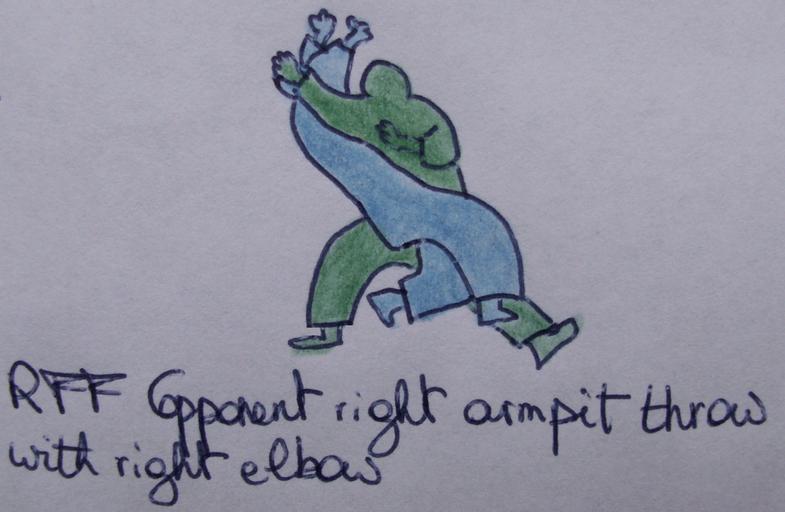 RFF Opponent right armpit throw
with right elbow